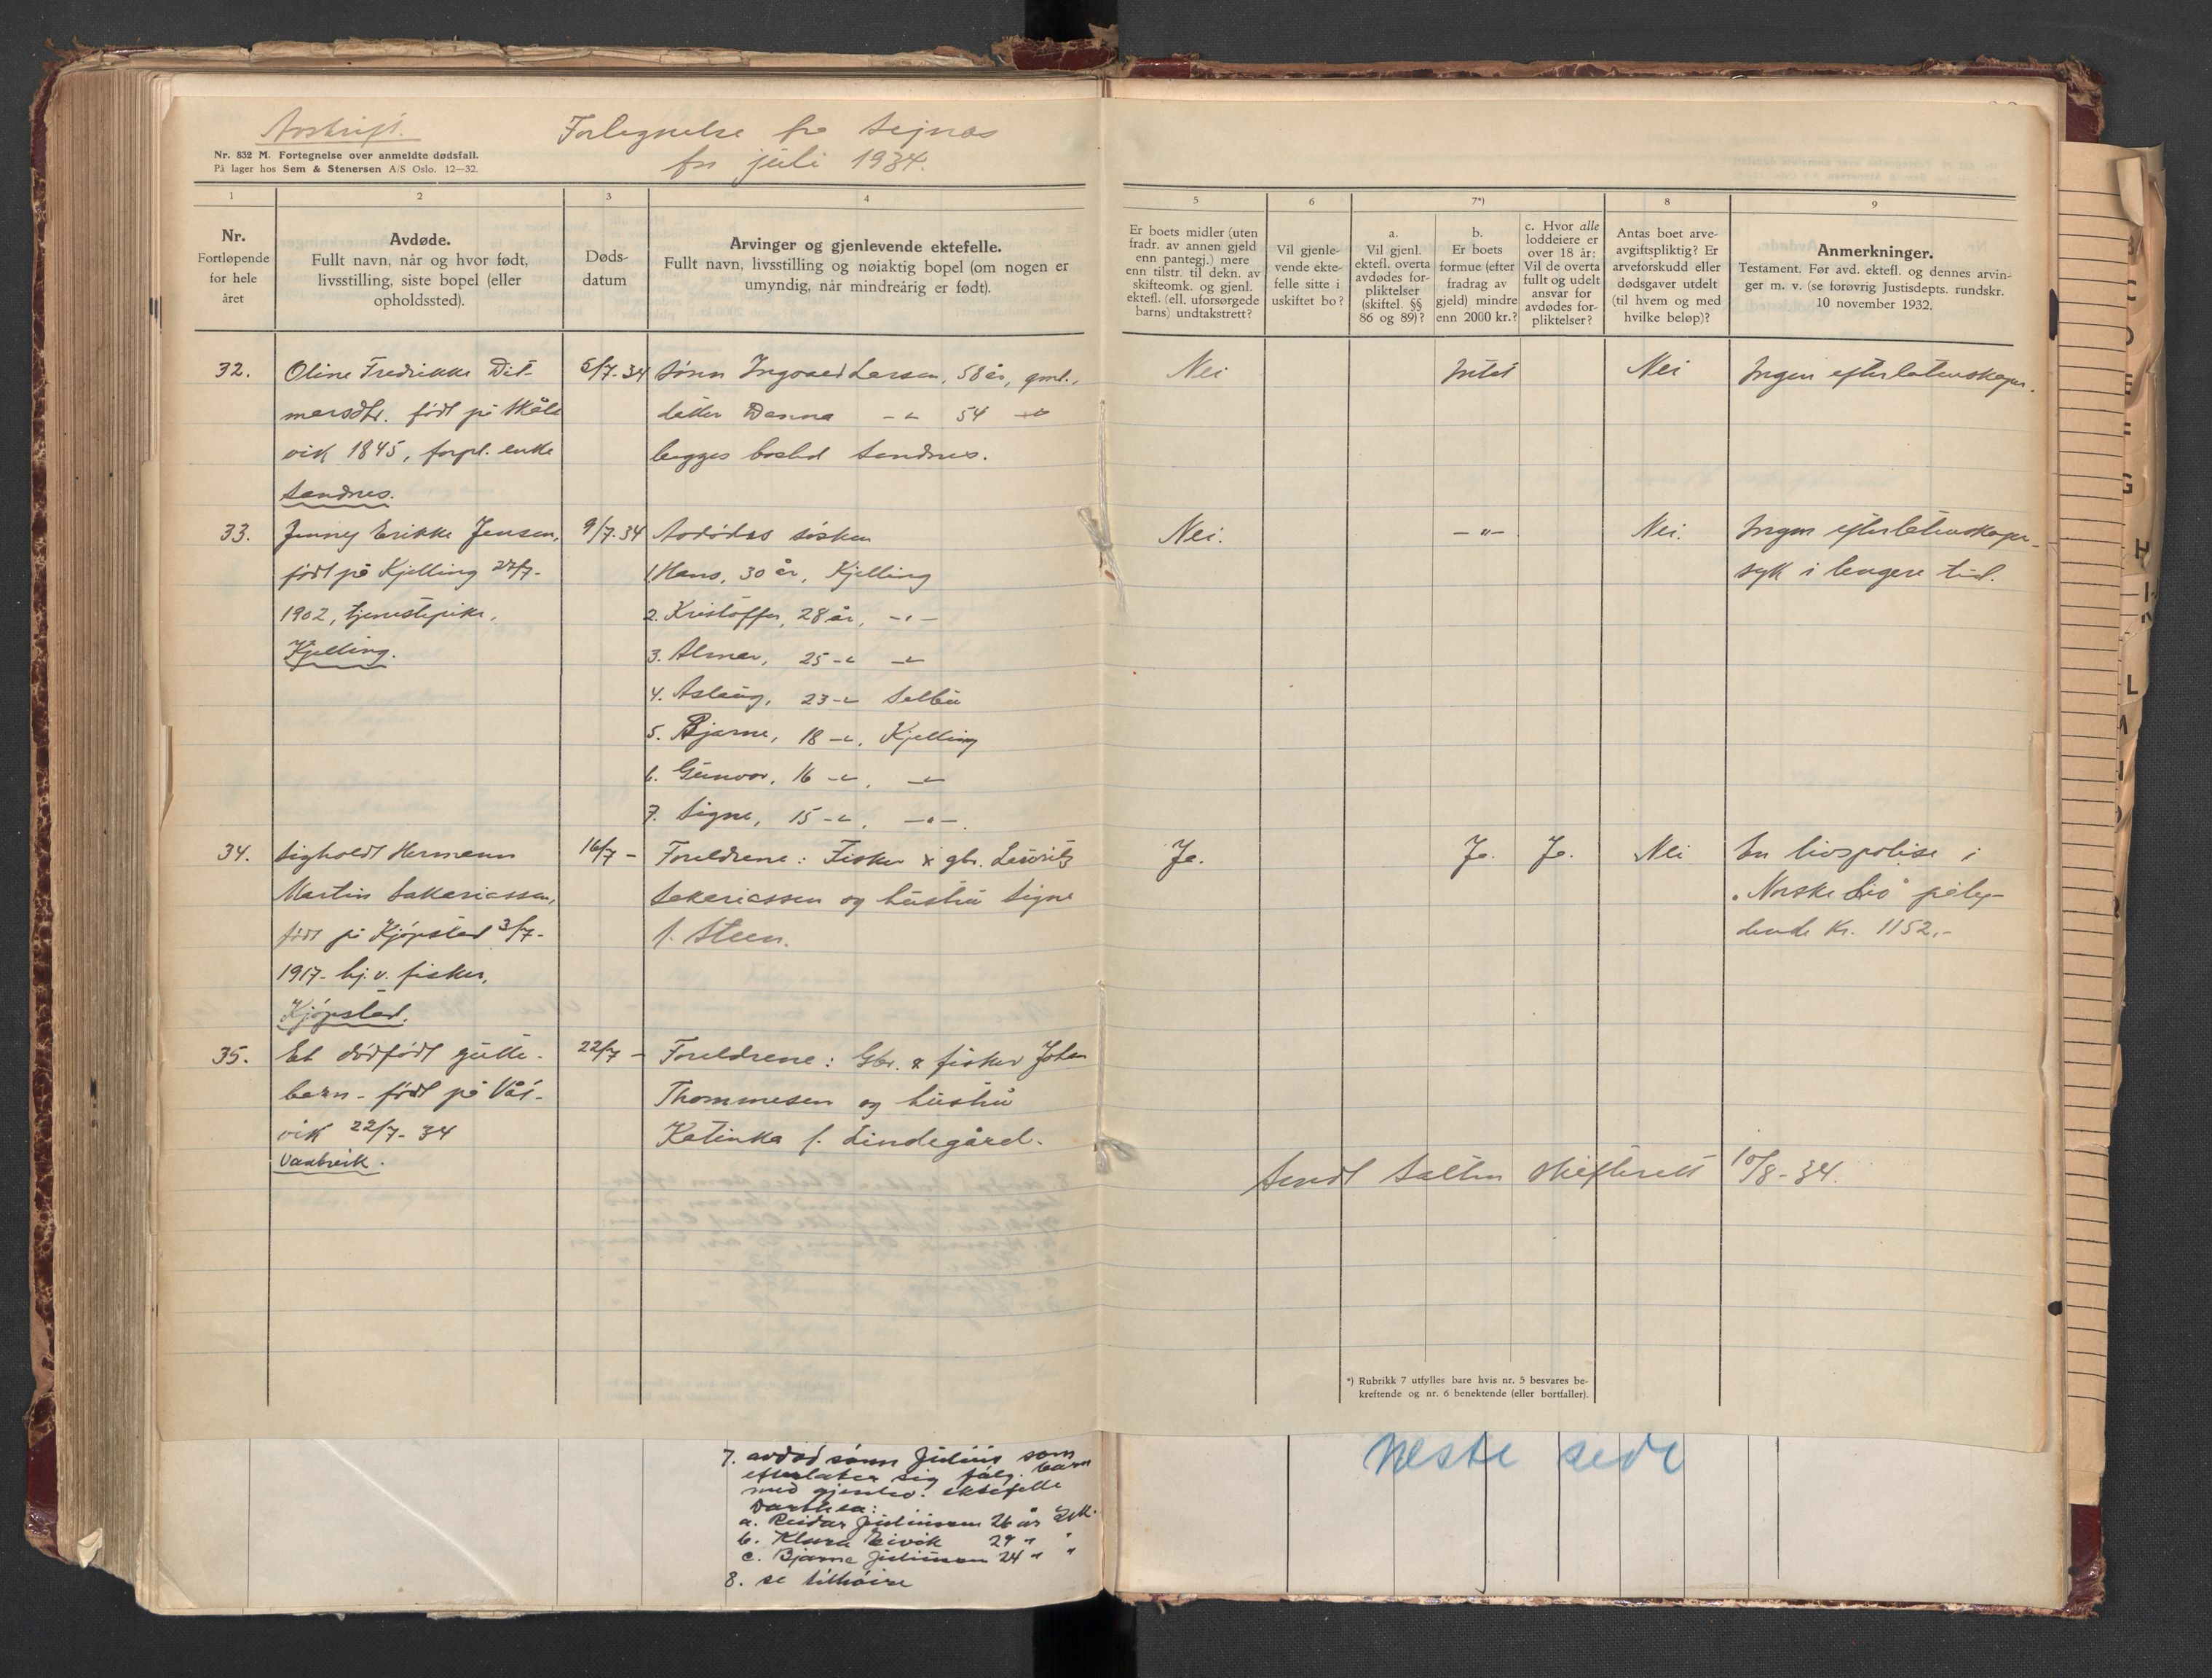 Avskrift.
Fortegnelse fra
for juli 1934.
Nr. 832 M. Fortegnelse over anmeldte dødsfall.
På lager hos Sem & Stenersen A/S Oslo. 12—32.
1
2
3
4
5
6
7*)
8
9
Nr.
Fortløpende
for hele
året
Avdøde.
Fullt navn, når og hvor født,
livsstilling, siste bopel (eller
opholdssted).
Døds-
datum
Arvinger og gjenlevende ektefelle.
Fullt navn, livsstilling og nøiaktig bopel (om nogen er
umyndig, når mindreårig er født).
Er boets midler (uten
fradr. av annen gjeld
enn pantegj.) mere
enn tilstr. til dekn. av
skifteomk. og gjenl.
ektefl. (ell. uforsørgede
barns) undtakstrett?
Vil gjenle-
vende ekte-
felle sitte i
uskiftet bo?
a.
Vil gjenl.
ektefl. overta
avdødes for-
pliktelser
(skiftel. §§
86 og 89)?
b.
Er boets
formue (efter
fradrag av
gjeld) mindre
enn 2000 kr.?
c. Hvor alle
loddeiere er
over 18 år:
Vil de overta
fullt og udelt
ansvar for
avdødes for-
pliktelser?
Antas boet arve-
avgiftspliktig? Er
arveforskudd eller
dødsgaver utdelt
(til hvem og med
hvilke beløp)?
Anmerkninger.
Testament. Før avd. ektefl. og dennes arvin-
ger m. v. (se forøvrig Justisdepts. rundskr.
10 november 1932.
32.
Oline Fredrikke Dit-
marsdtr. født på Skåls
vik 1845, forpl. enke
Sandnes.
5/7.34
Sønn Ingvald Larsen, 58 år, gml.,
datter Danna -"- 54 -"-
begges bosted Sandnes.
Nei
Intet
Nei
Ingen efterlatenskaper.
33.
Jenny Erikke Jensen,
født på Kjelling 27/7-
1902, tjenestepike,
Kjelling.
9/7.34
Avdødes søsken
1. Hans, 30 år, Kjelling
2. Kristoffer, 28 år, -"-
3. Almar, 25 -"- -"-
4. Aslaug, 23 -"-
5. Bjarne, 18 -"-, Kjelling
6. Gunvor, 16 -"-, -"-
7. Signe, 15 -"-, -"-.
Nei.
-"-
Nei.
Ingen efterlatenskaper-
syk i lengere tid.
34.
Sigholdt Hermann
Martin Sakariassen,
født på Kjøpstad 3/7-
1917- hj. v. fisker,
Kjøpstad.
16/7 -
Foreldrene: Fisker & gbr. Lauritz
Sakariassen og hustru Signe
f. Steen.
Ja.
Ja.
Ja.
Nei
En livspolise i
"Norske Liv" pålyd-
ende kr. 1152,-
35.
Et dødfødt gutte-
barn - født på Våt-
vik 22/7- 34
Vaatvik.
22/7 -
Foreldrene: Gbr. & fisker Johan
Thommesen og hustru
Katinka f. Lindegård.
Sendt Salten skifterett 10/8-34.
*) Rubrikk 7 utfylles bare hvis nr. 5 besvares be-
kreftende og nr. 6 benektende (eller bortfaller).
7. avdød sønn Julius som
efterlater sig følg. barn
med gjenlev. ektefelle
Darthea:
a. Reidar Juliussen 26 år
b. Klara 29 " "
c. Bjarne Juliussen 24 " "
8. se tilhøire
Neste side